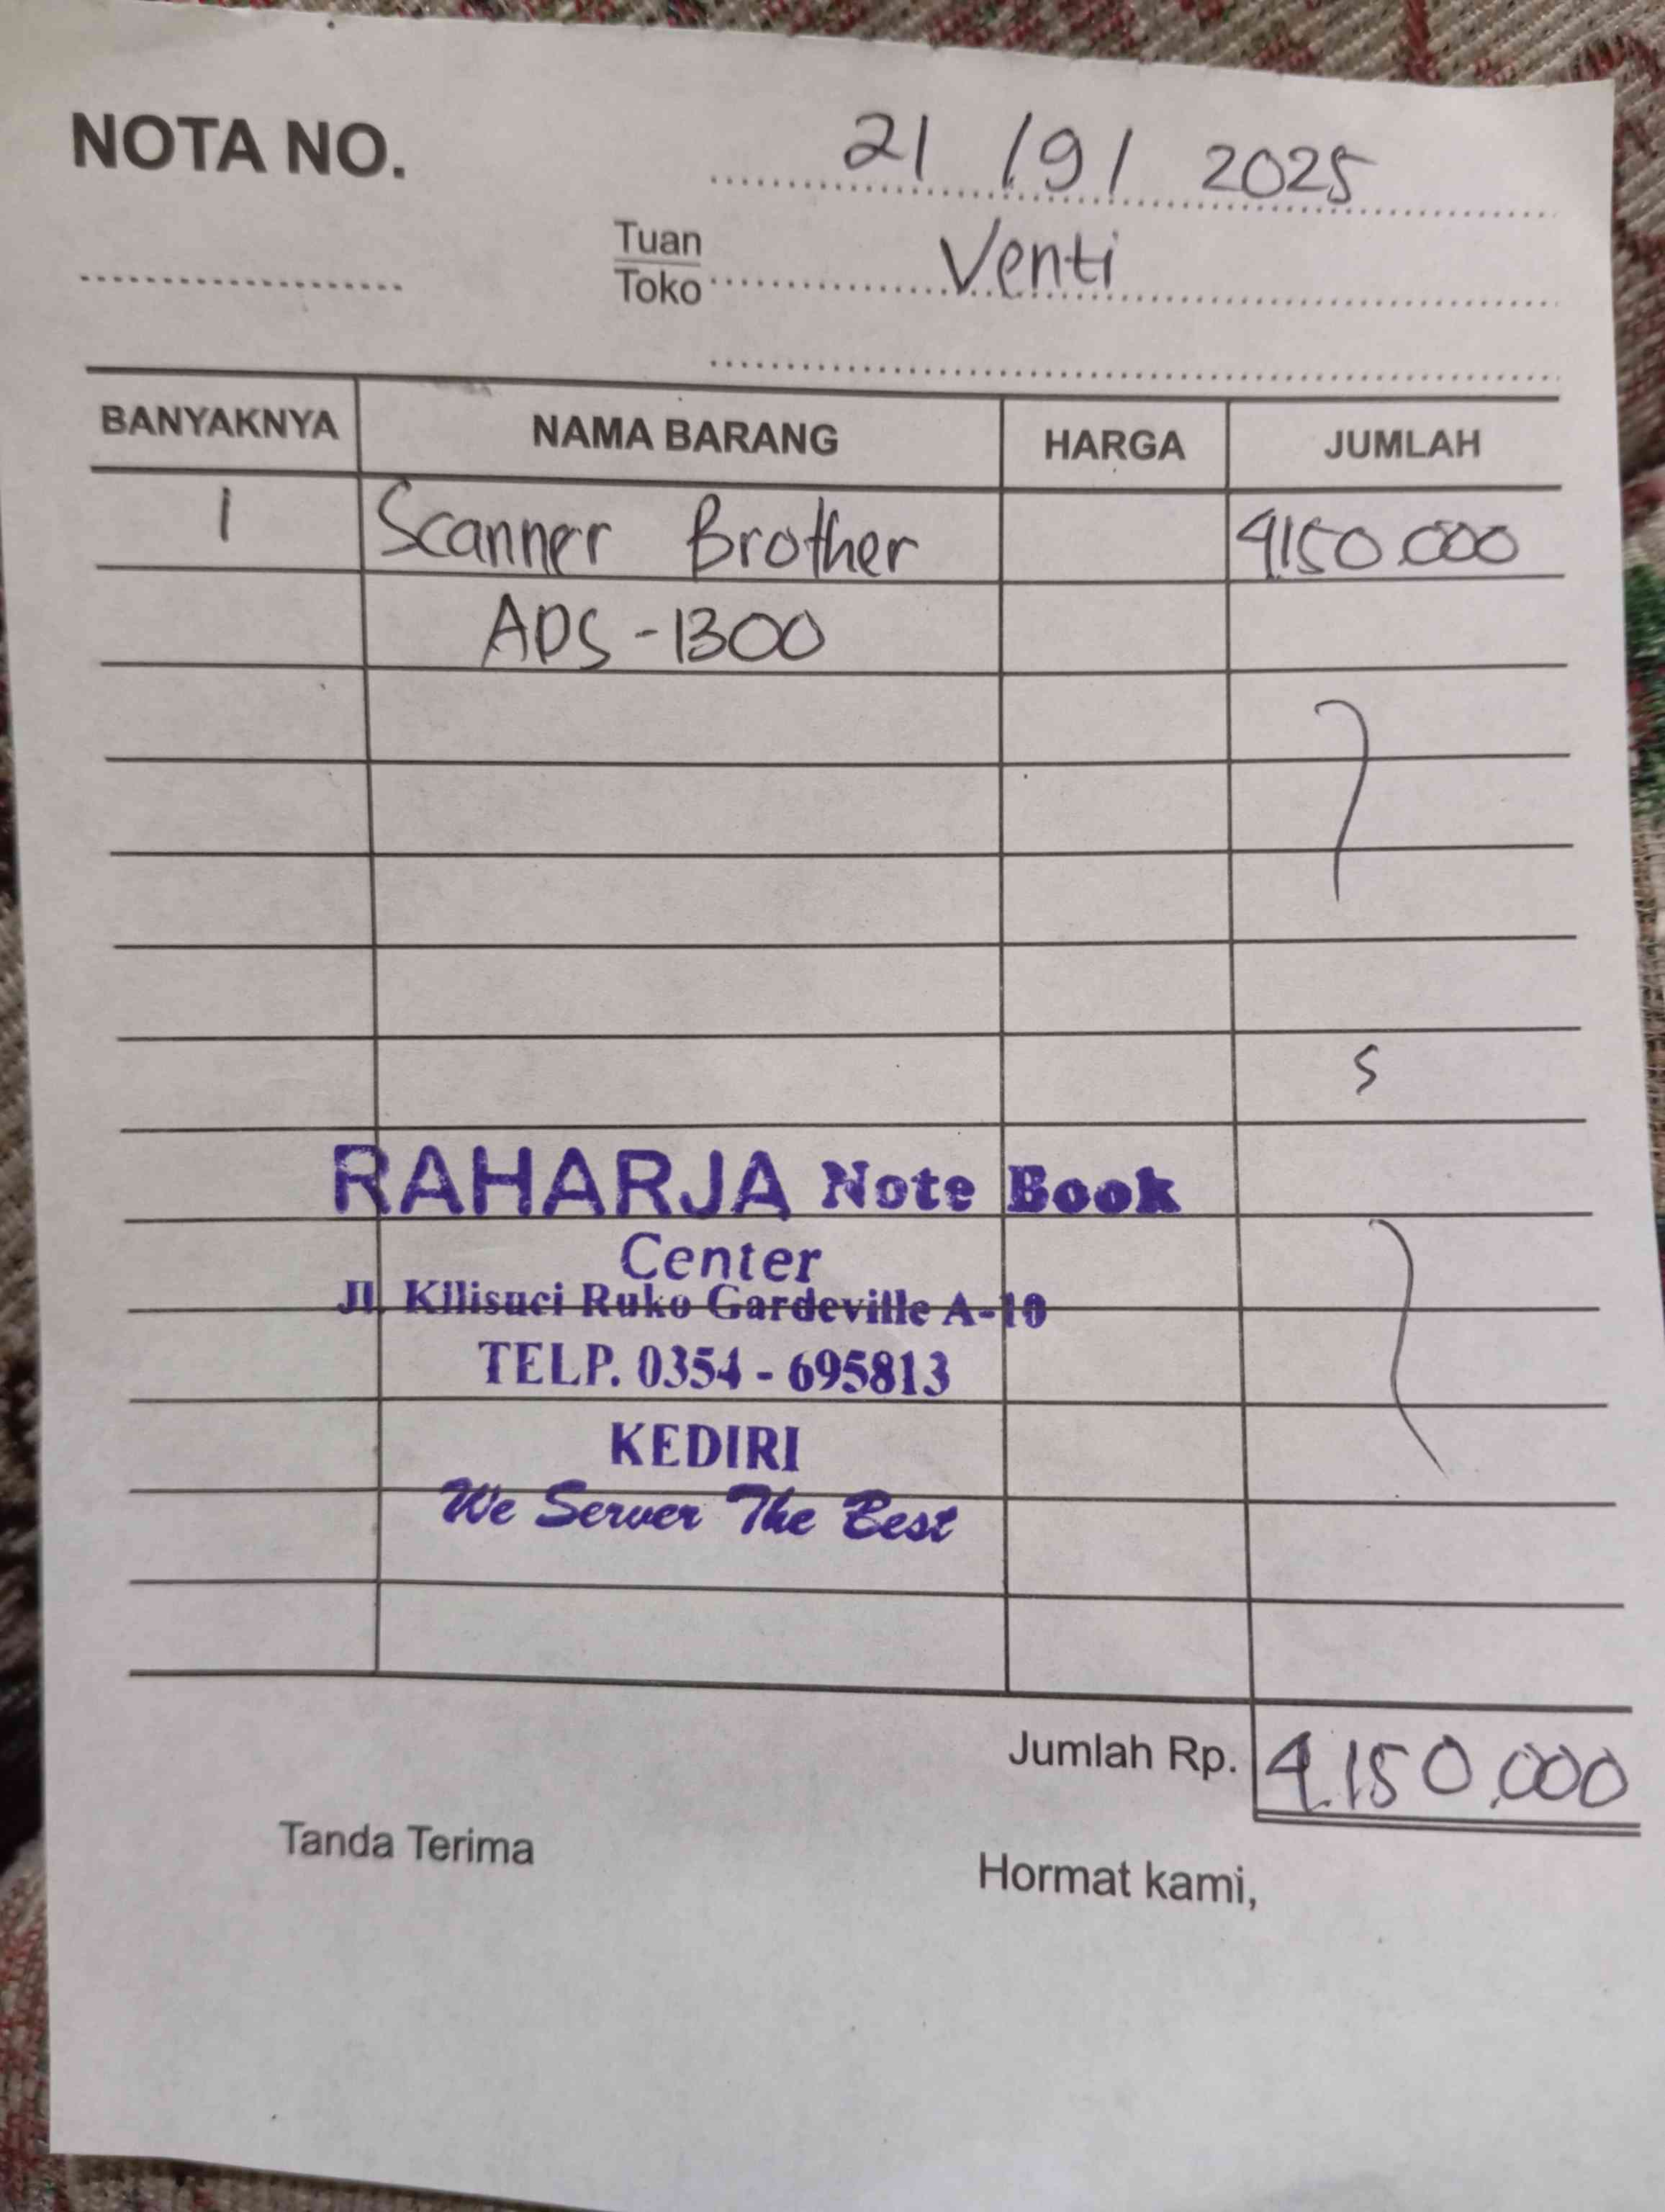 NOTA NO.
21 / 9 / 2025
Tuan
Toko
Venti
BANYAKNYA NAMA BARANG HARGA JUMLAH
1 Scanner Brother 4.150.000
ADS - 1300
S
RAHARJA Note Book
Center
Jl. Kilisuci Ruko Gardeville A-10
TELP. 0354 - 695813
KEDIRI
We Server The Best
Jumlah Rp. 4.150.000
Tanda Terima
Hormat kami,